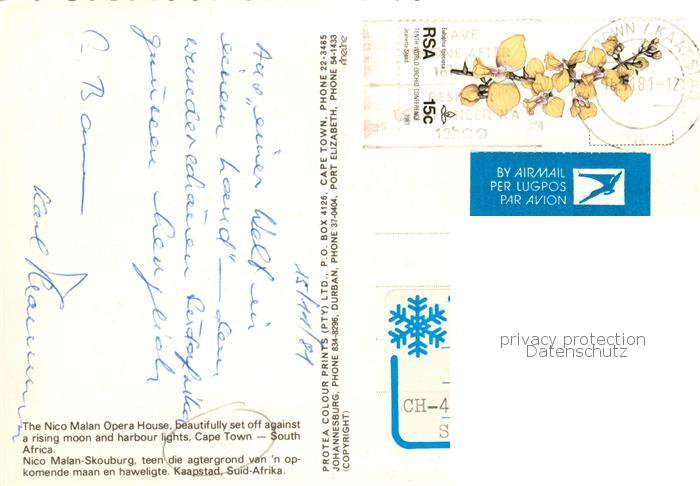 15/11/81
Aus „einer Welt in
einem Land" — dem
wunderschönen Südafrika
grüssen herzlich
Karl
The Nico Malan Opera House, beautifully set off against
a rising moon and harbour lights, Cape Town — South
Africa.
Nico Malan-Skouburg, teen die agtergrond van 'n op-
komende maan en haweligte. Kaapstad, Suid-Afrika.
PROTEA COLOUR PRINTS (PTY) LTD., P.O. BOX 4126, CAPE TOWN, PHONE 22-3485
JOHANNESBURG, PHONE 834-8296, DURBAN, PHONE 37-0404, PORT ELIZABETH, PHONE 54-1433
(COPYRIGHT)
RSA 15c
TENTH WORLD ORCHID CONFERENCE
1981
81-12
BY AIRMAIL
PER LUGPOS
PAR AVION
CH-4
S
privacy protection
Datenschutz